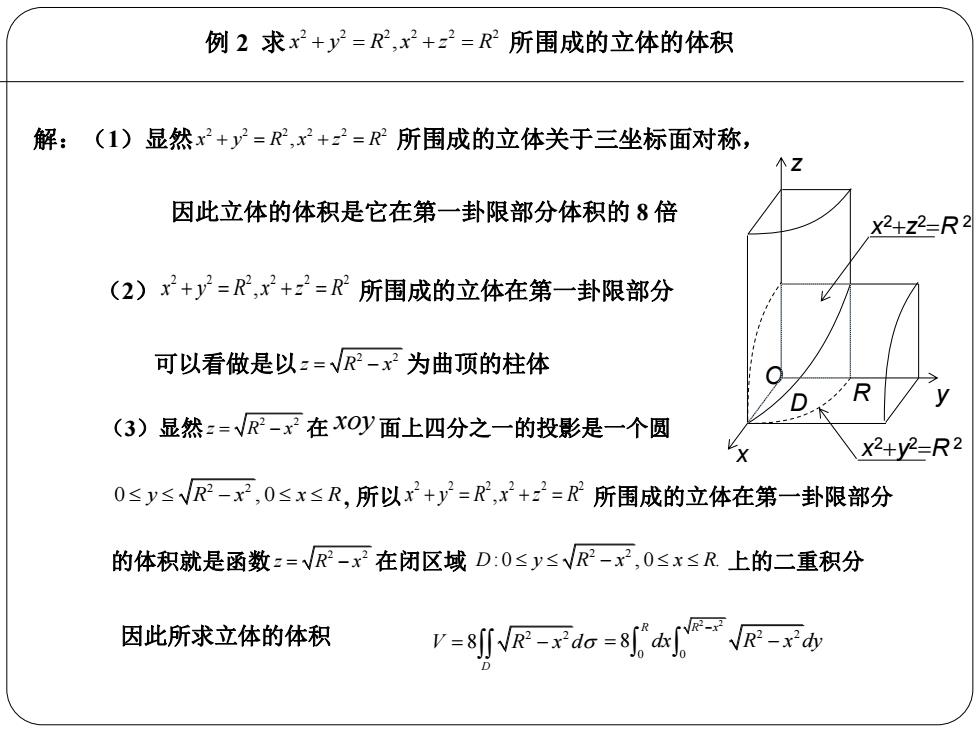 例 2 求 x² + y² = R², x² + z² = R² 所围成的立体的体积
解：（1）显然 x² + y² = R², x² + z² = R² 所围成的立体关于三坐标面对称，
因此立体的体积是它在第一卦限部分体积的 8 倍
（2）x² + y² = R², x² + z² = R² 所围成的立体在第一卦限部分
可以看做是以 z = √(R² − x²) 为曲顶的柱体
（3）显然 z = √(R² − x²) 在 xoy 面上四分之一的投影是一个圆
0 ≤ y ≤ √(R² − x²), 0 ≤ x ≤ R, 所以 x² + y² = R², x² + z² = R² 所围成的立体在第一卦限部分
的体积就是函数 z = √(R² − x²) 在闭区域 D: 0 ≤ y ≤ √(R² − x²), 0 ≤ x ≤ R. 上的二重积分
因此所求立体的体积 V = 8∬_D √(R² − x²) dσ = 8∫₀^R dx ∫₀^√(R²−x²) √(R² − x²) dy
z
x²+z²=R²
O
D
R
y
x
x²+y²=R²